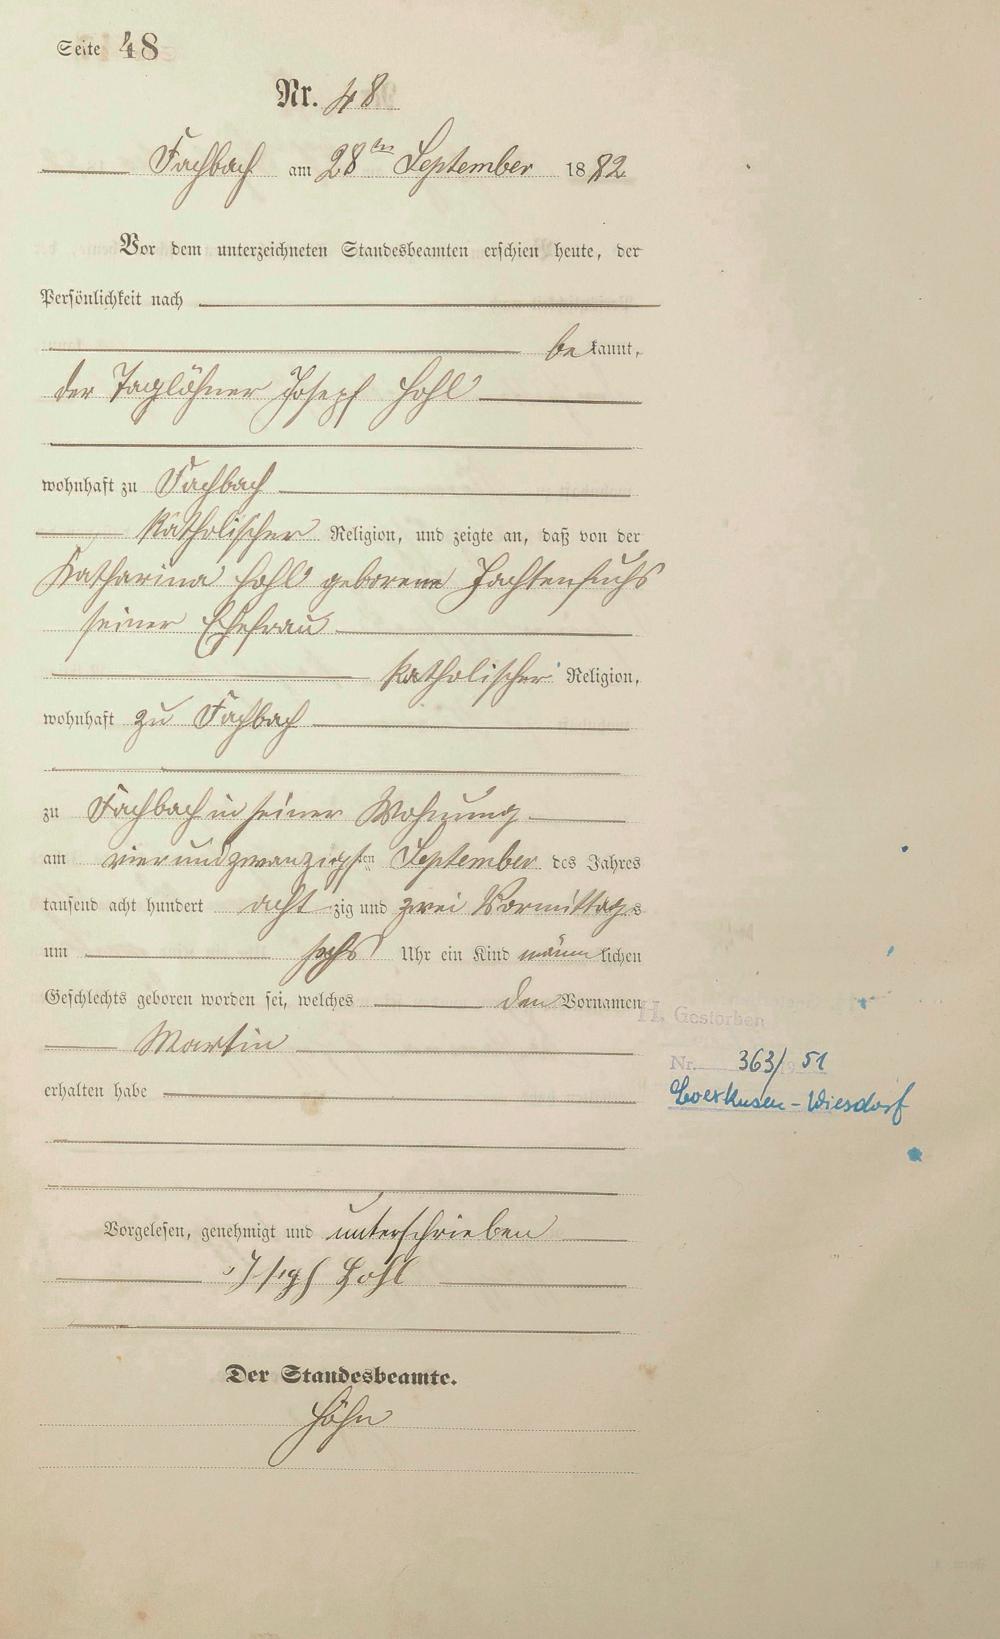 Seite 48
Nr. 48
Fachbach am 28ten September 1882
Vor dem unterzeichneten Standesbeamten erschien heute, der
Persönlichkeit nach
bekannt,
der Taglöhner Joseph Hohl
wohnhaft zu Fachbach
katholischer Religion, und zeigte an, daß von der
Katharina Hohl geborene Jachtenfuchs
seiner Ehefrau
katholischer Religion,
wohnhaft zu Fachbach
zu Fachbach in seiner Wohnung
am vierundzwanzigsten September des Jahres
tausend acht hundert achtzig und zwei Vormittags
um sechs Uhr ein Kind männlichen
Geschlechts geboren worden sei, welches den Vornamen
Martin
erhalten habe
H. Gestorben
Nr. 363/1951
Leverkusen-Wiesdorf
Vorgelesen, genehmigt und unterschrieben
Hohl
Der Standesbeamte.
Höhn